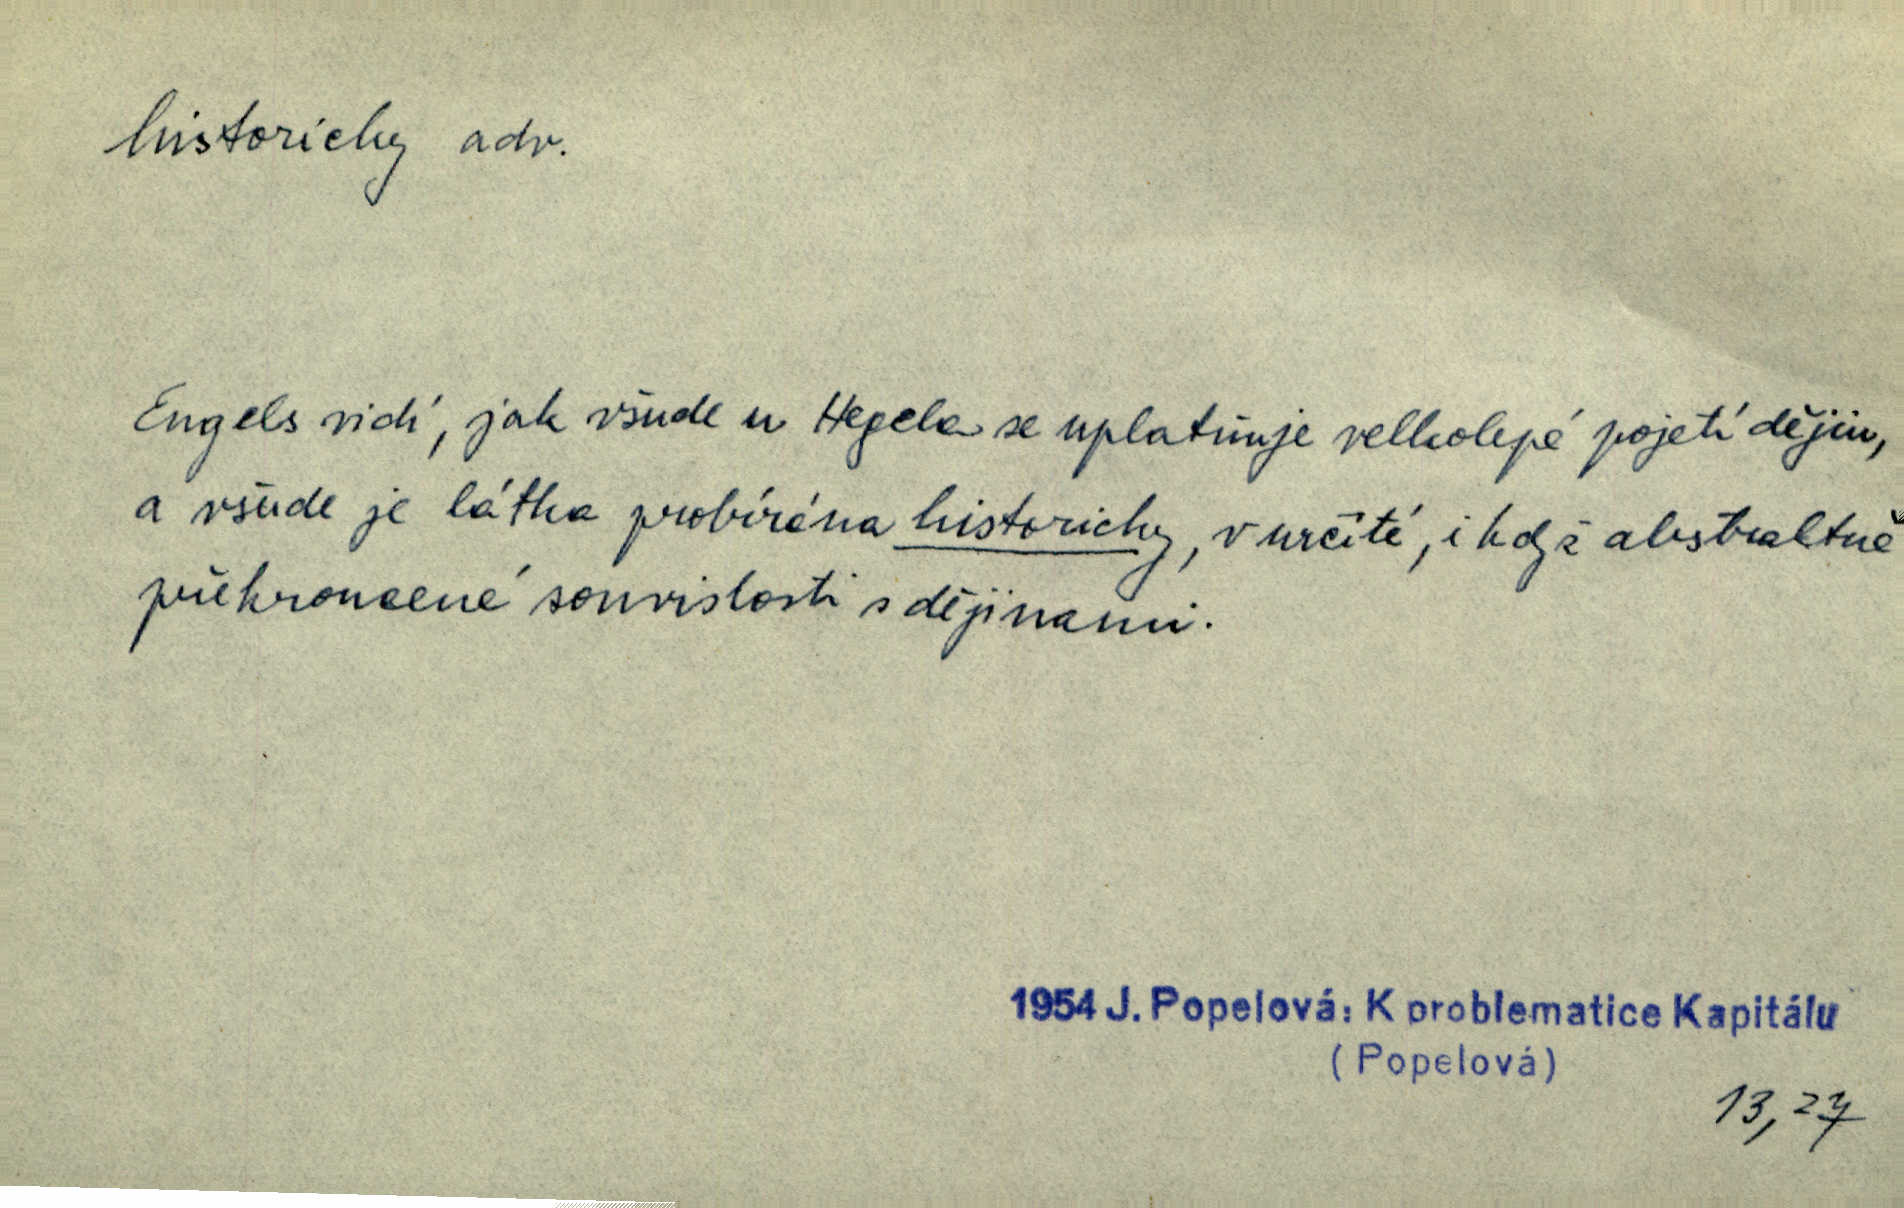 historicky adv.
Engels vidí, jak všude u Hegela se uplatňuje velkolepé pojetí dějin,
a všude je látka probírána historicky, v určité, i když abstraktně
překroucené souvislosti s dějinami.
1954 J. Popelová: K problematice Kapitálu
(Popelová)
13, 27